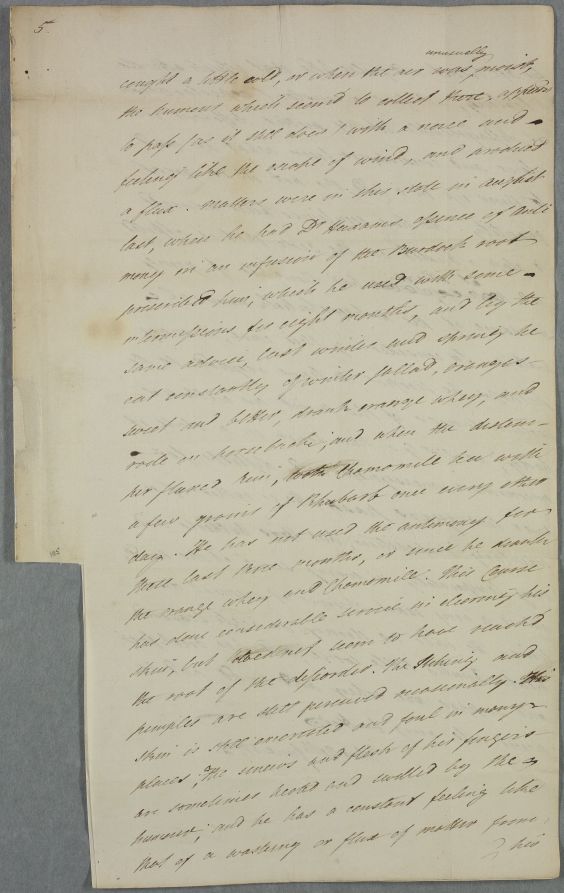 5.
unusually
caught a little cold, or when the air was moist,
the humour which seem'd to collect there, appear'd
to pass (as it still does) with a noise and
feeling like the escape of wind, and produced
a flux. Matters were in this state in August
last, when he had Dr Huxams essence of Anti
mony in an infusion of the Burdock root
prescribed him; which he used with some
intermissions for eight months, and by the
same advice, last winter and spring he
eat constantly of winter sallad, oranges
sweet and bitter, drank orange whey, and
rode on horseback; and when the distem-
per fluxed him, Chamomile tea with
a few grains of Rhubarb once every other
day. He has not used the antimony for
these last three months, or since he drank
the orange whey and Chamomile. This Course
has done considerable service in clearing his
skin, but does not seem to have reach'd
the root of the disorder. The Itching and
pimples are still perceived occasionally. His
skin is still encrusted and foul in many
places; The sinews and flesh of his fingers
are sometimes heated and swelled by the
humour; and he has a constant feeling like
that of a washing or flux of matter from
his
105